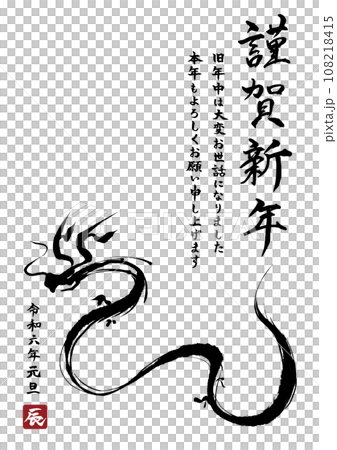 謹賀新年
旧年中は大変お世話になりました
本年もよろしくお願い申し上げます
令和六年元旦
辰
PIXTA
pixta.jp - 108218415